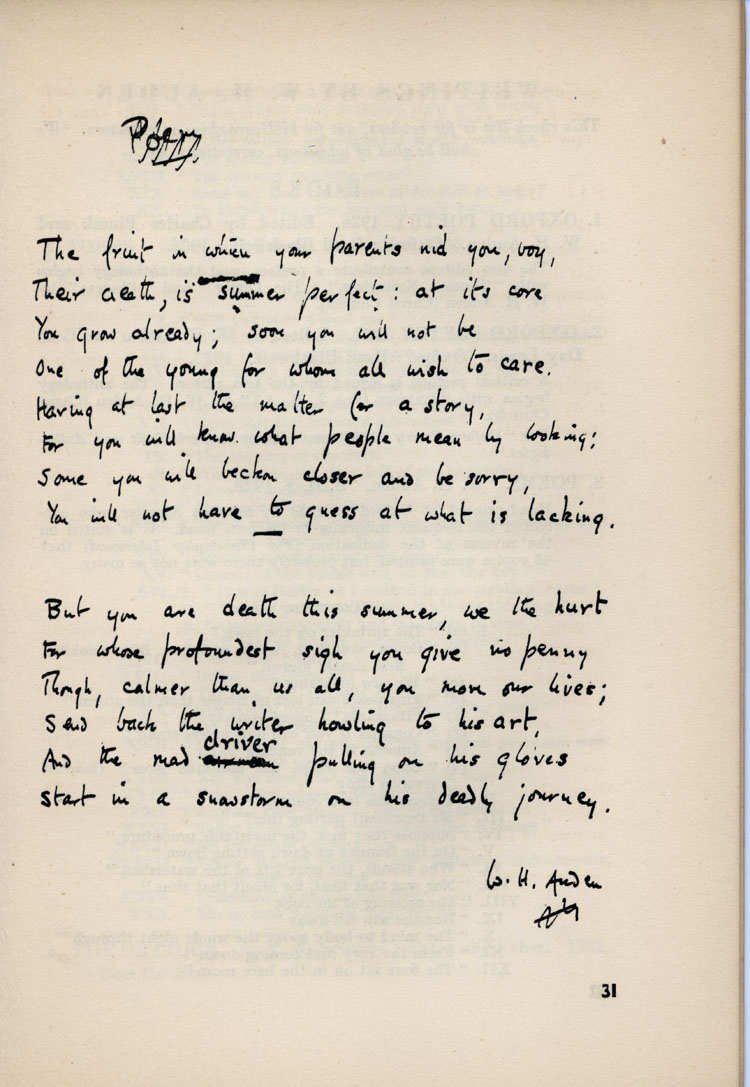 Poem
The fruit in which your parents hid you, boy,
Their death, is summer perfect: at its core
You grow already; soon you will not be
One of the young for whom all wish to care.
Having at last the matter for a story,
For you will know what people mean by looking;
Some you will beckon closer and be sorry,
You will not have to guess at what is lacking.
But you are death this summer, we the hurt
For whose profoundest sigh you give no penny
Though, calmer than us all, you move our lives;
Send back the writer howling to his art,
driver
And the mad pulling on his gloves
Start in a snowstorm on his deadly journey.
W. H. Auden
31